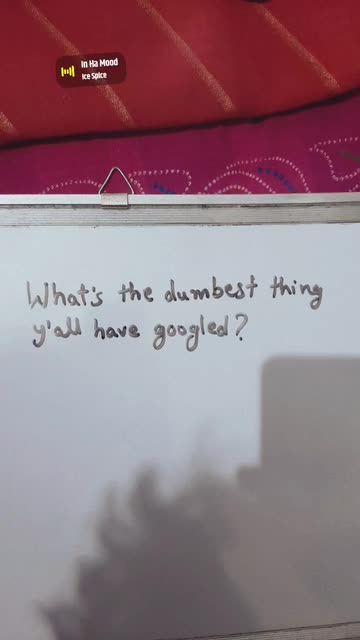 In Ha Mood
Ice Spice
What's the dumbest thing
y'all have googled?